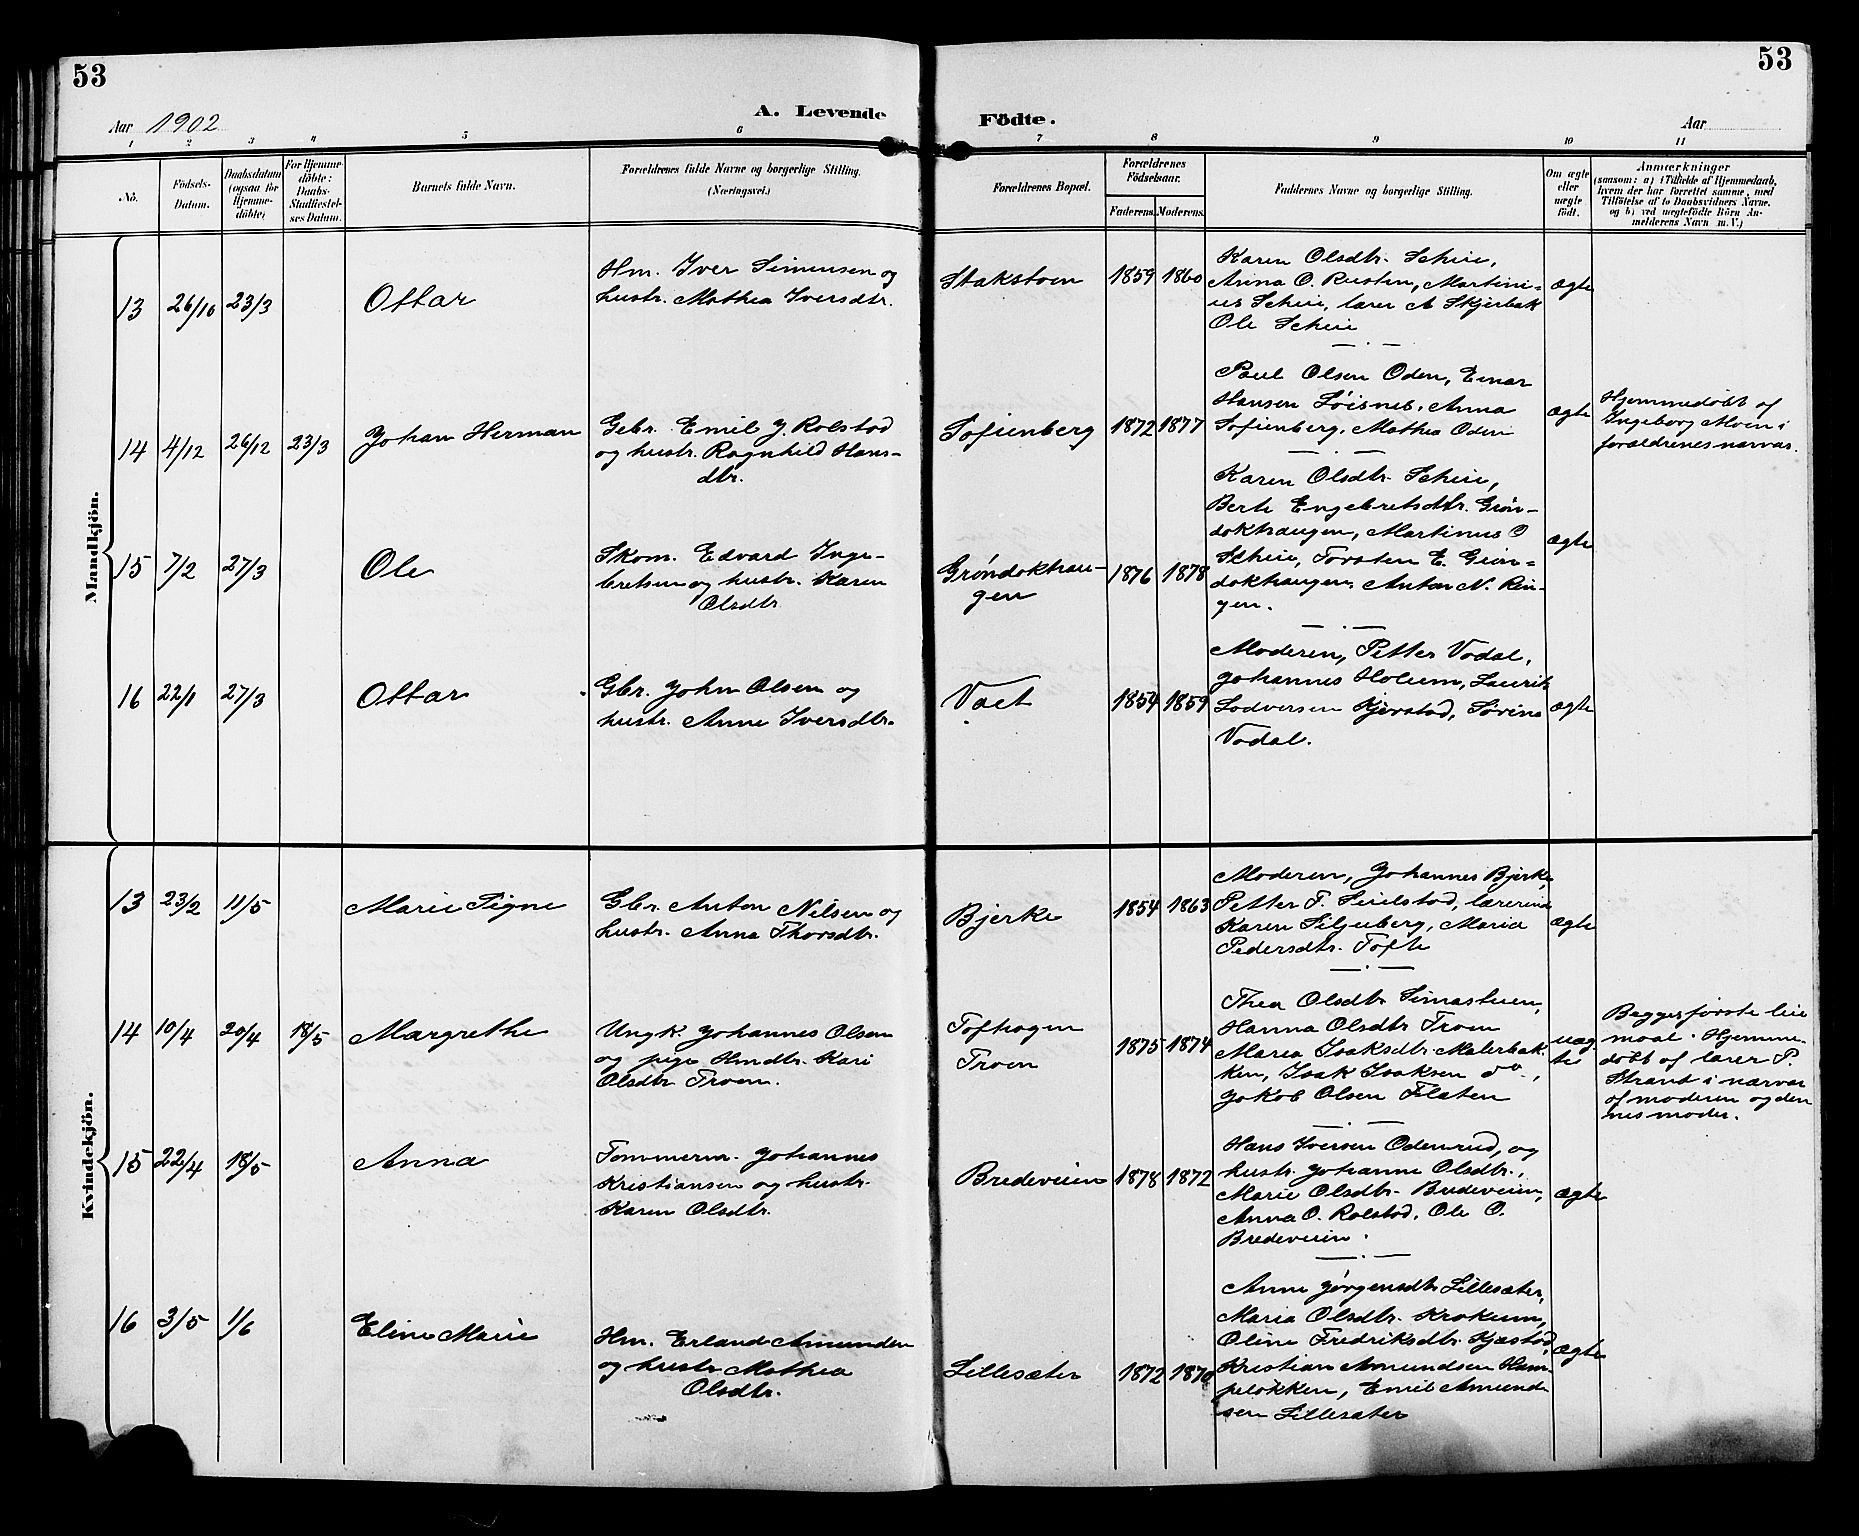 53
53
Aar 1902
A. Levende
Födte.
Aar
1 2 3 4 5 6 7 8 9 10 11
No.
Födsels-
Datum.
Daabsdatum
(ogsaa for
Hjemme-
döbte)
For Hjemme-
döbte:
Daabs-
Stadfæstel-
ses Datum.
Barnets fulde Navn.
Forældrenes fulde Navne og borgerlige Stilling.
(Næringsvei.)
Forældrenes Bopæl.
Forældrenes
Födselsaar.
Faderens. Moderens.
Faddernes Navne og borgerlige Stilling.
Om ægte
eller
uægte
födt.
Anmærkninger
(saasom: a) i Tilfælde af Hjemmedaab,
hvem der har forrettet samme, med
Tilföielse af to Daabsvidners Navne.
og b) ved uægtefödte Börn An-
melderens Navn m. V.)
Mandkjön.
13 26/10 23/3
Ottar
Hm. Iver Simensen og
hustr. Mathea Iversdtr.
Stakstoen
1859 1860
Karen Olsdtr. Scheie,
Anna O. Rusten, Martini-
us Scheie, lærer A Skjerbak
Ole Scheie
ægte
14 4/12 26/12 23/3
Johan Herman
Gebr. Emil J. Rolstad
og hustr. Ragnhild Hans-
dtr.
Sofienberg
1872 1877
Paul Olsen Oden, Einar
Hansen Löisnes, Anna
Sofienberg, Mathea Oden
ægte
Hjemmedöbt af
Ingeborg Moen i
forældrenes nærvær.
15 7/2 27/3
Ole
Skom. Edvard Inge-
bretsen og hustr. Karen
Olsdtr.
Gröndokhau-
gen
1876 1878
Karen Olsdtr. Scheie,
Berte Engebretsdtr. Grön-
dokhaugen, Martinus O
Scheie, Torsten E. Grön-
dokhaugen, Anton N. Rin-
gen.
ægte
16 22/1 27/3
Ottar
Gbr. John Olsen og
hustr. Anne Iversdtr.
Vaet
1854 1859
Moderen, Petter Vadal,
Johannes Holum, Laurits
Lodversen Kjörstad, Sörine
Vadal.
ægte
Kvindekjön.
13 23/2 11/5
Marie Signe
Gbr. Anton Nilsen og
hustr. Anna Thorsdtr.
Bjerke
1854 1863
Moderen, Johannes Bjerke,
Petter F. Seielstad, lærerinde
Karen Siljuberg, Maria
Pedersdtr. Tofte
ægte
14 10/4 20/4 18/5
Margrethe
Ungk. Johannes Olsen
og pige Hmdtr. Kari
Olsdtr Troen.
Tofthagen
Troen
1875 1874
Thea Olsdtr Simastuen,
Hanna Olsdtr Troen
Maria Isaksdtr. Malerbak-
ken, Isak Isaksen do.,
Jakob Olsen Flaten
uæg-
te
Begges förste leie
maal. Hjemme-
döbt af lærer P.
Strand i nærvær
af moderen og den
nes moder.
15 22/4 18/5
Anna
Tömmerm. Johannes
Kristiansen og hustr.
Karen Olsdtr.
Bredeveien
1878 1872
Hans Iversen Odenrud, og
hustr. Johanne Olsdtr.,
Marie Olsdtr. Bredeveien,
Anna O. Rolstad, Ole O.
Bredeveien.
ægte
16 3/5 1/6
Eline Marie
Hm. Erland Amundsen
og hustr Mathea
Olsdtr.
Lillesæter
1872 1870
Anne Jörgensdtr Lillesæter,
Maria Olsdtr. Krokum,
Oline Fredriksdtr. Kjæstad,
Kristian Amundsen Ham-
pelökken, Emil Amund-
sen Lillesæter
ægte